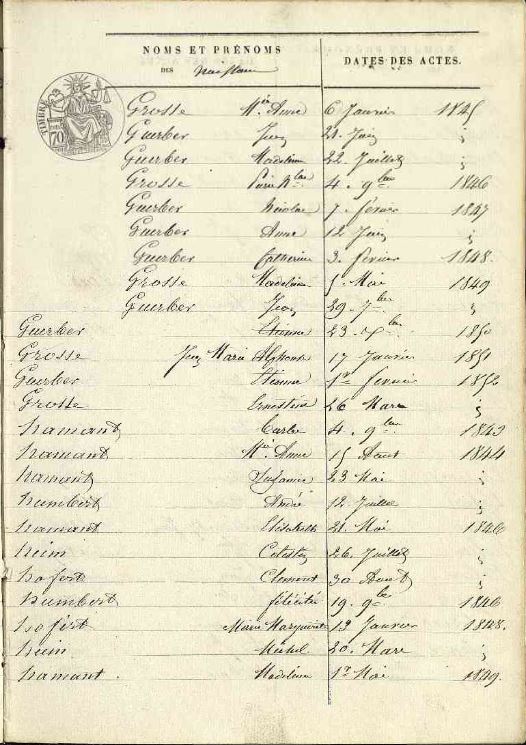 NOMS ET PRÉNOMS
DES naissances
DATES DES ACTES.
TIMBRE
70
Grosse Mie Anne 6 Janvier 1845
Guerber Jean 21. Juin "
Guerber Madeleine 22. Juillet "
Grosse Pierre Nlas 4. 9bre 1846
Guerber Nicolas 7. février 1847
Guerber Anne 12 Juin "
Guerber Catherine 3. février 1848.
Grosse Madeleine 5. Mai 1849
Guerber Jean 29. 7bre "
Guerber Etienne 23. 9bre 1850
Grosse Jean Marie Alphonse 17 Janvier 1851
Guerber Etienne 1er février 1852
Grosse Ernestine 26 Mars "
hamant Barbe 4. 9bre 1843
hamant Mie Anne 15 Aout 1844
hamant Suzanne 23 Mai "
humbert André 12. Juillet "
hamant Elisabeth 21. Mai 1846
heim Celestin 26. Juillet "
hofert Clement 30. Aout "
humbert félicité 19. 9bre 1846
hofert Marie Marguerite 13 Janvier 1848.
heim Michel 20. Mars "
hamant Madeleine 1er Mai 1849.